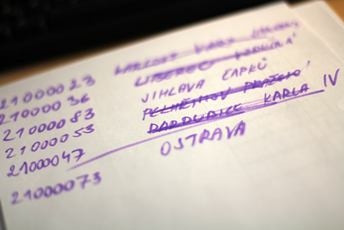 21000023 KARLOVY VARY
21000036 LIBEREC
21000083 JIHLAVA ČAPKŮ
21000053 PELHŘIMOV
21000047 PARDUBICE KARLA IV
21000073 OSTRAVA